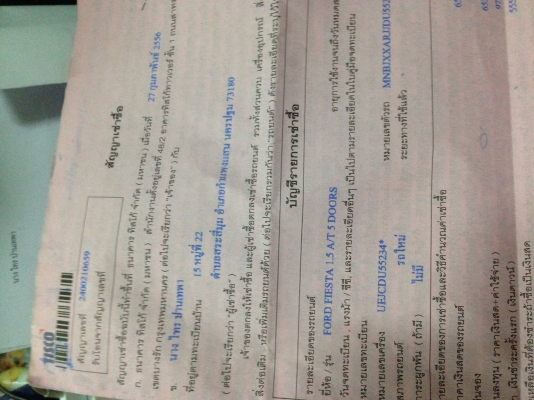 นายไพร ปานเทศา
TISCO
สัญญาเลขที่ 2400210659
รับโอนจากสัญญาเลขที่
สัญญาเช่าซื้อ
สัญญาเช่าซื้อฉบับนี้ทำขึ้นที่ ธนาคาร ทิสโก้ จำกัด ( มหาชน ) เมื่อวันที่ 27 กุมภาพันธ์ 2556
ก. ธนาคาร ทิสโก้ จำกัด ( มหาชน ) สำนักงานตั้งอยู่เลขที่ 48/2 อาคารทิสโก้ทาวเวอร์ ชั้น
เขตบางรัก กรุงเทพมหานคร ( ต่อไปจะเรียกว่า "เจ้าของ" ) กับ
ข. นาย ไพร ปานเทศา
ที่อยู่ตามทะเบียนบ้าน 15 หมู่ที่ 22
ตำบลสระสี่มุม อำเภอกำแพงแสน นครปฐม 73180
( ต่อไปจะเรียกว่า "ผู้เช่าซื้อ" )
เจ้าของตกลงให้เช่าซื้อ และผู้เช่าซื้อตกลงเช่าซื้อรถยนต์ รวมทั้งส่วนควบ เครื่องอุปกรณ์
หรือเพิ่มเติมรถยนต์ด้วย ( ต่อไปจะเรียกรวมกันว่า "รถยนต์" ) ดังรายละเอียดที่ระบุไว้ใน
บัญชีรายการเช่าซื้อ
รายละเอียดของรถยนต์
ยี่ห้อ / รุ่น FORD FIESTA 1.5 A/T 5 DOORS อายุการใช้งานจนถึงวันหมด
วันจดทะเบียน , แรงม้า / ซีซี, และรายละเอียดอื่นๆ เป็นไปตามรายละเอียดในใบคู่มือจดทะเบียน
หมายเลขทะเบียน
หมายเลขเครื่อง UEJCDU55234* หมายเลขตัวรถ
สภาพรถยนต์ รถใหม่ ระยะทางที่ใช้แล้ว
ภาระผูกพัน ( ถ้ามี ) ไม่มี
รายละเอียดของการเช่าซื้อและวิธีคำนวณค่าเช่าซื้อ
ราคาเงินสดของรถยนต์
เงินจอง
เงินลงทุน ( ราคาเงินสด + ค่าใช้จ่าย )
เงินชำระครั้งแรก ( เงินดาวน์ )